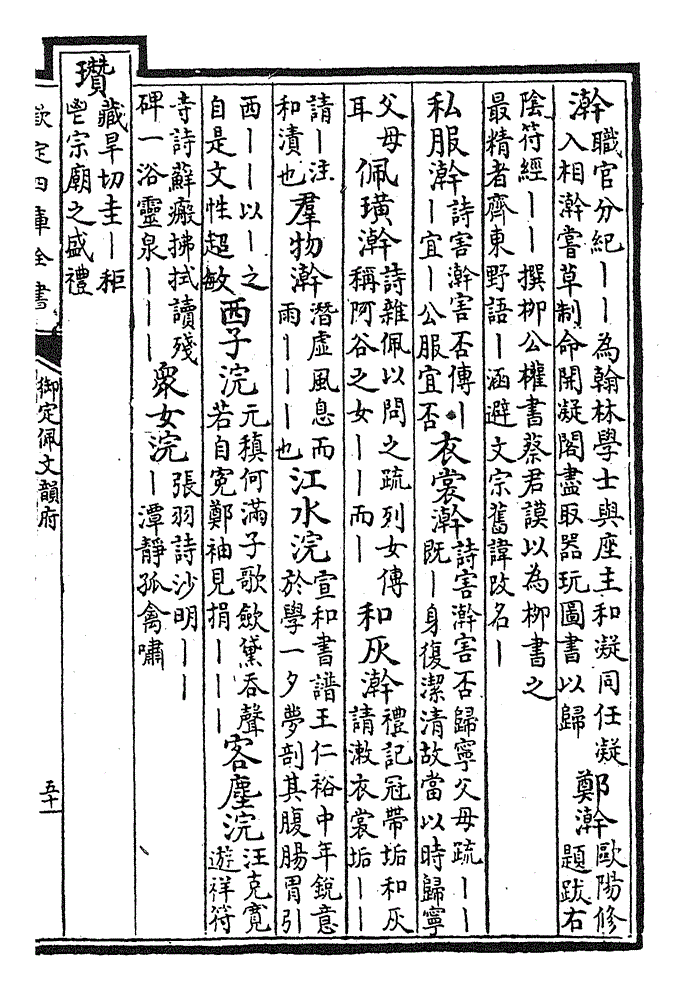 澣職官分紀——為翰林學士與座主和凝同任凝入相澣嘗草制命開凝閣盡取器玩圖書以歸 鄭澣歐陽修題跋右
陰符經——撰柳公權書蔡君謨以為柳書之最精者齊東野語—涵避文宗舊諱改名—
私服澣詩害澣害否傳—宜—公服宜否 衣裳澣詩害澣害否歸寧父母疏——既—身復潔清故當以時歸寧
父母耳 佩璜澣詩雜佩以問之疏列女傳稱阿谷之女——而— 和灰澣禮記冠帶垢和灰請漱衣裳垢——
請—注和漬也 羣物澣潛虛風息而雨———也 江水浣宣和書譜王仁裕中年銳意於學一夕夢剖其腹腸胃引
西——以—之自是文性超敏 西子浣元稹何滿子歌歛黛吞聲若自冤鄭袖見捐——— 客塵浣汪克寬遊祥符
寺詩蘇瘢拂拭讀殘碑一浴靈泉——— 衆女浣張羽詩沙明———潭靜孤禽嘯
瓚藏旱切圭—秬鬯宗廟之盛禮
欽定四庫全書
御定佩文韻府
五十一